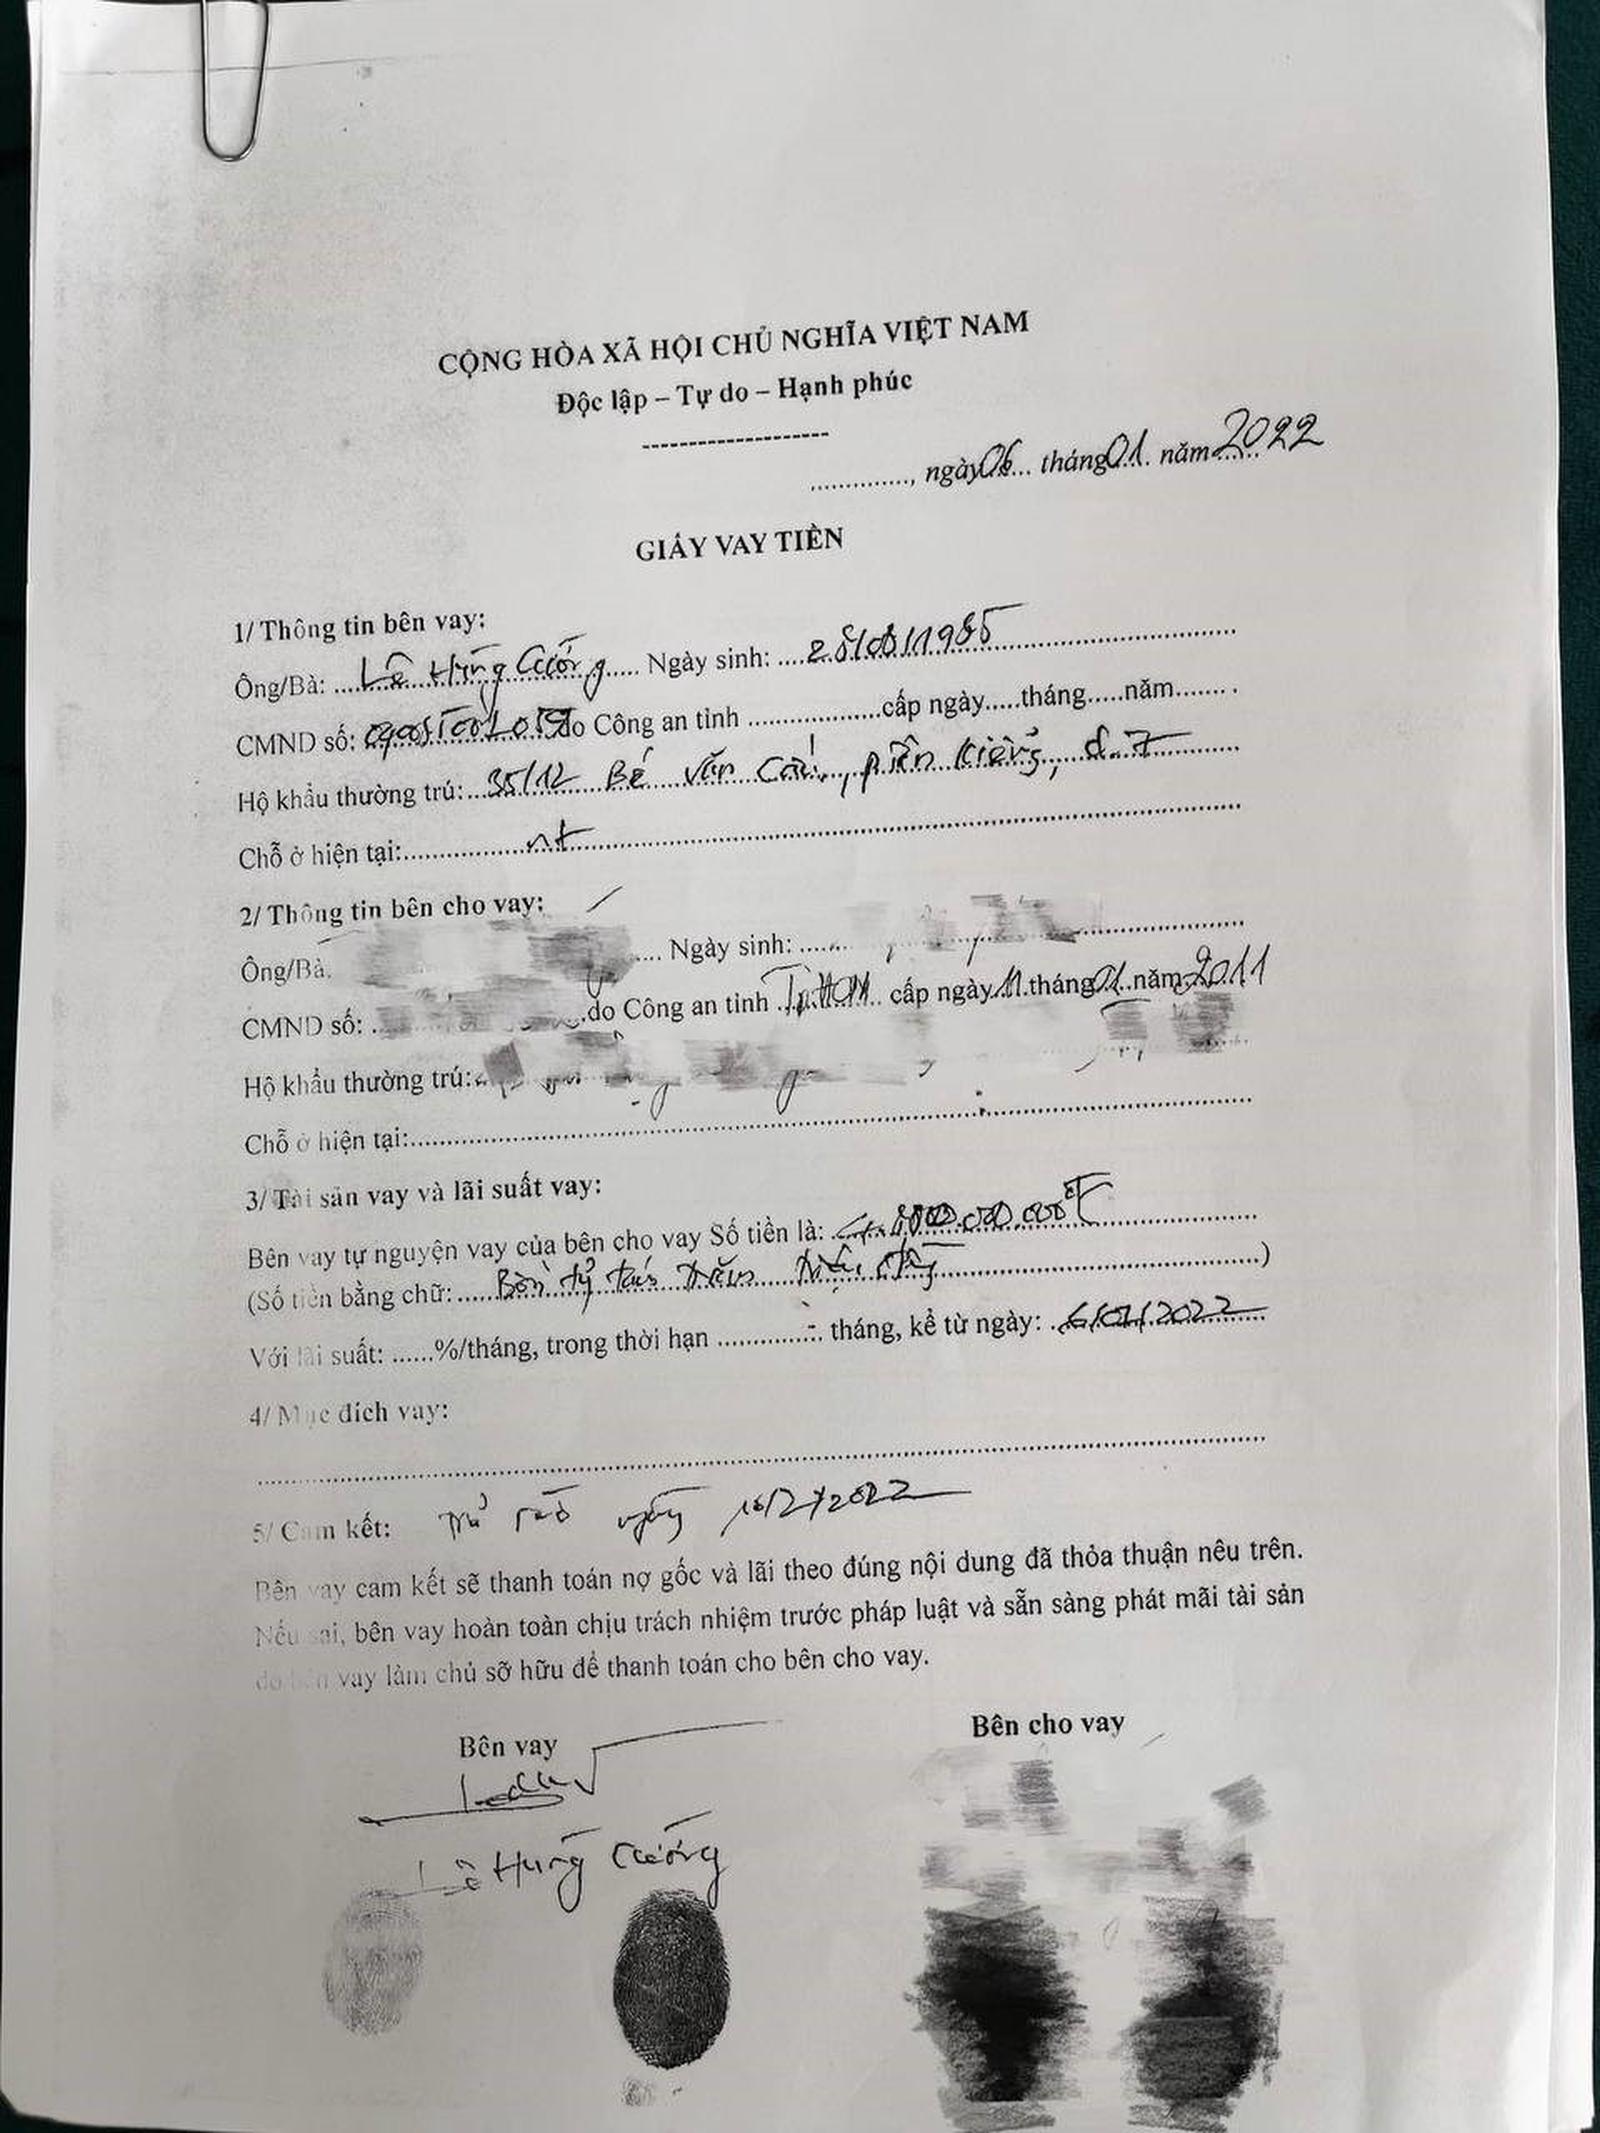 CỘNG HÒA XÃ HỘI CHỦ NGHĨA VIỆT NAM
Độc lập – Tự do – Hạnh phúc
--------------------
............., ngày 06... tháng 01. năm 2022
GIẤY VAY TIỀN
1/ Thông tin bên vay:
Ông/Bà: .... Lê Hùng Cường ..... Ngày sinh: ....
CMND số: do Công an tỉnh ...................cấp ngày.....tháng.....năm.......
Hộ khẩu thường trú:... 35/12 Bế Văn
Chỗ ở hiện tại:........ nt ........
2/ Thông tin bên cho vay:
Ông/Bà. .... Ngày sinh: ......
CMND số: .. .do Công an tỉnh .. Tp.HCM .. cấp ngày 11. tháng 01. năm 2011
Hộ khẩu thường trú:
Chỗ ở hiện tại:........
3/ Tài sản vay và lãi suất vay:
Bên vay tự nguyện vay của bên cho vay Số tiền là: 4.800.000.000đ
(Số tiền bằng chữ:..... Bốn tỷ tám trăm triệu đồng ........)
Với lãi suất: ......%/tháng, trong thời hạn ............... tháng, kể từ ngày: .6/01/2022
4/ Mục đích vay:
5/ Cam kết: ngày 16/2/2022
Bên vay cam kết sẽ thanh toán nợ gốc và lãi theo đúng nội dung đã thỏa thuận nêu trên.
Nếu sai, bên vay hoàn toàn chịu trách nhiệm trước pháp luật và sẵn sàng phát mãi tài sản
do bên vay làm chủ sỡ hữu để thanh toán cho bên cho vay.
Bên vay Bên cho vay
Lê Hùng Cường